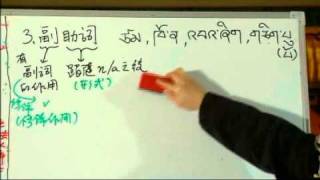 3. 副助词 ཙམ, ཁོ་ན, འབའ་ཞིག, གཅིག་པུ
(པོ)
有 副词 的作用 跟进 n/a 之后
(形式)
修饰 v
(修饰作用)